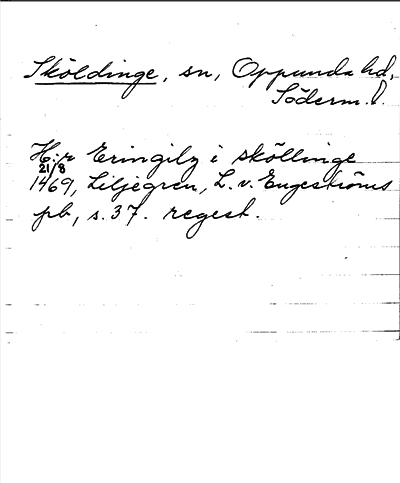 Sköldinge, sn, Oppunda hd,
Söderm. l.
H:r Eringilz i sköllinge
21/8
1469, Liljegren, L. v. Engeströms
pb, s. 37. regest.